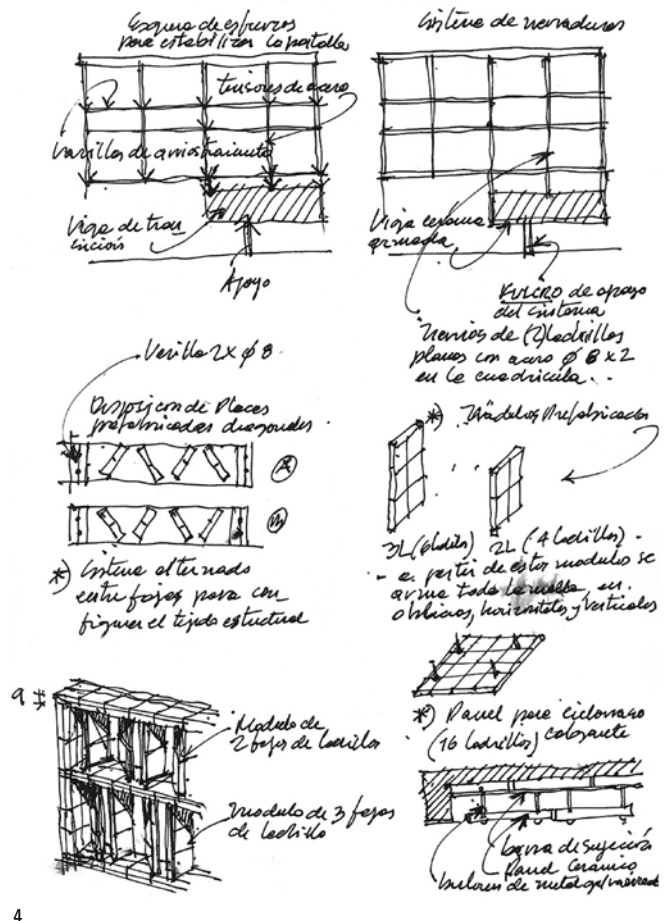 Esquema de esfuerzos
para estabilizar la pantalla
tensores de acero
Varillas de arriostramiento
Viga de tran
sición
Apoyo
Sistema de nervaduras
Viga cerámica
armada
FULCRO de apoyo
del sistema
Nervios de (2) ladrillos
planos con acero ϕ 8 x 2
en la cuadrícula..
Varilla 2x ϕ 8.
Disposicion de Placas
prefabricadas diagonales
*) Sistema alternado
entre fajas para con
figurar el tejido estructural
*) Módulos Prefabricados
3L (6 ladrillos)
2L (4 ladrillos) -
- a partir de estos modulos se
arma toda la malla, en
oblicuos, horizontales y verticales
*) Panel para cielorraso
(16 ladrillos) colgante
9
Modulo de
2 fajas de ladrillos
modulo de 3 fajas
de ladrillo
barra de sujeción
Panel Ceramico
bulones de metal galvanizado
4